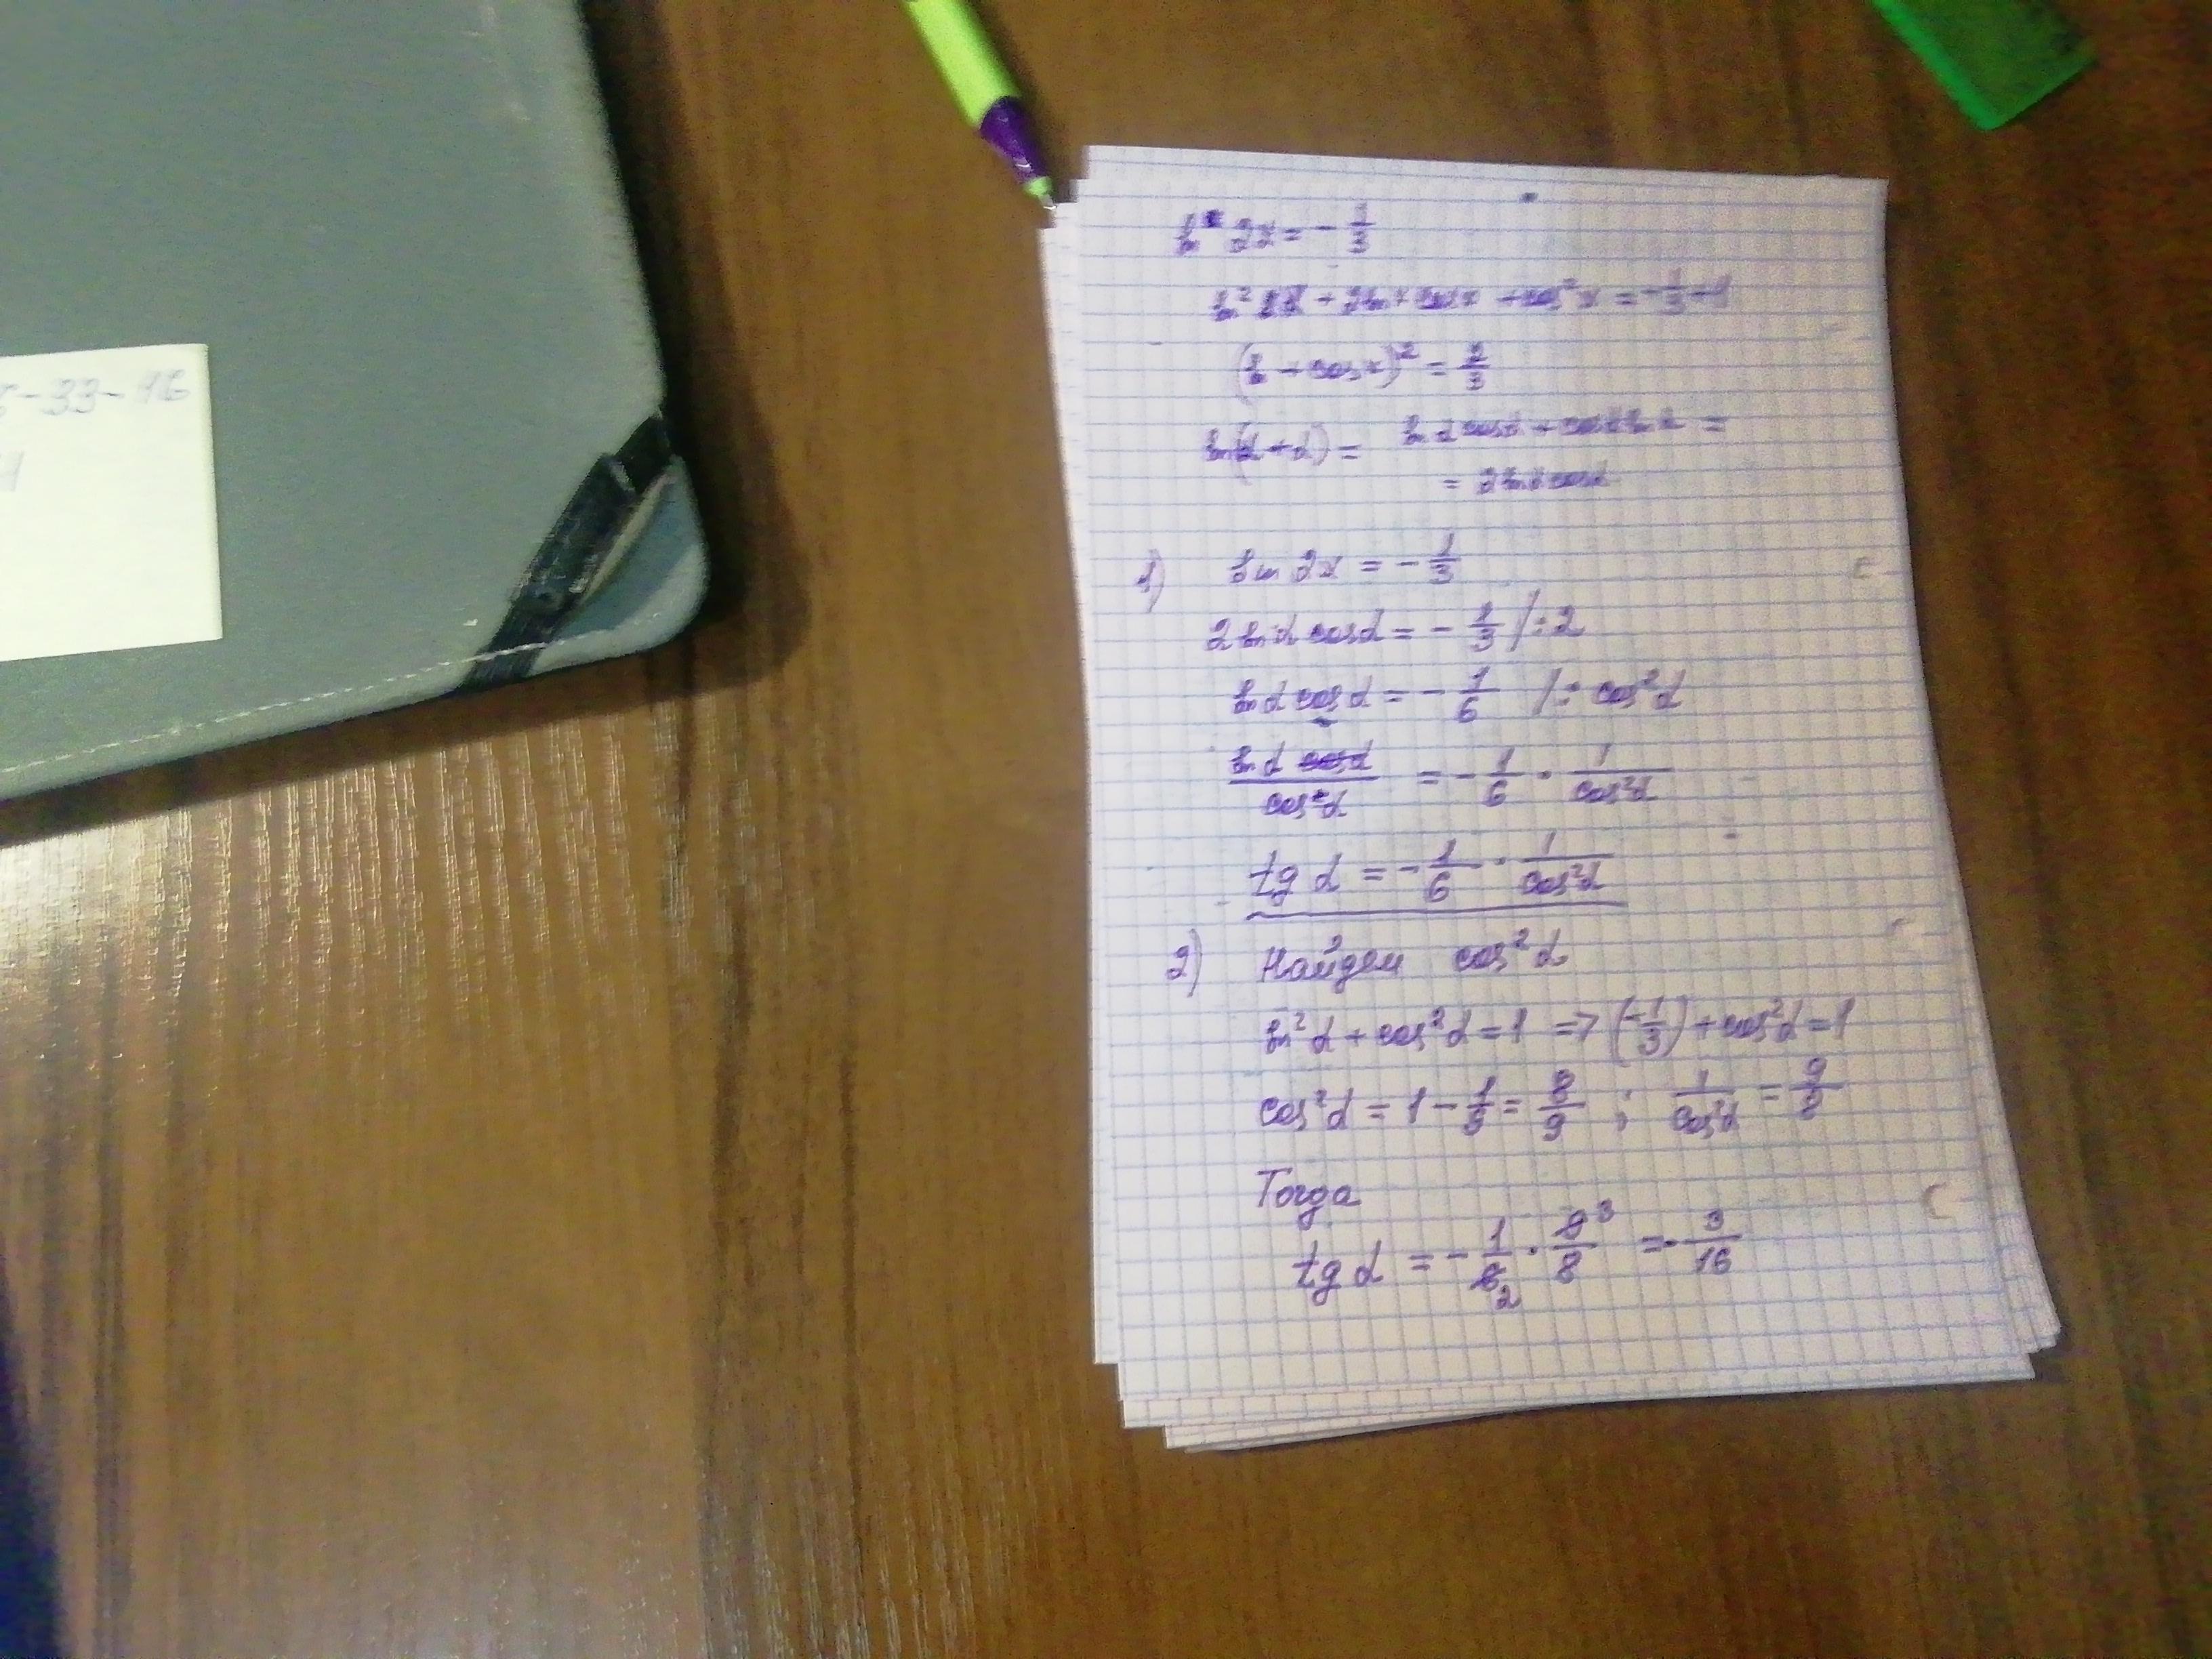 5-33-16
sin 2x = - 1/3
sin² x + 2sin x cos x + cos² x = - 1/3 + 1
(sin + cos x)² = 2/3
sin(α + α) = sin α cos α + cos α sin α =
= 2 sin α cos α
1) sin 2x = - 1/3
2 sin α cos α = - 1/3 / : 2
sin α cos α = - 1/6 / : cos² α
sin α cos α / cos² α = - 1/6 · 1/cos² α
tg α = - 1/6 · 1/cos² α
2) Найдем cos² α
sin² α + cos² α = 1 => (-1/3) + cos² α = 1
cos² α = 1 - 1/9 = 8/9 ; 1/cos² α = 9/8
Тогда
tg α = - 1/6 2 · 9 3/8 = - 3/16